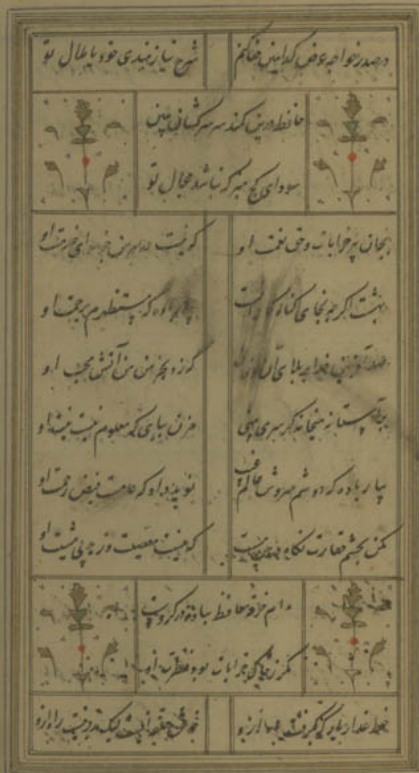 در صدر خواجه عرض کدامین جفا کنم شرح نیازمندی خود یا ملال تو
حافظ درین کمند سر سرکشان
سودای کج مپز که نباشد مجال تو
بجان پیر خرابات و حق نعمت او که نیست در سر من جز هوای خدمت او
بهشت اگر چه نه جای گناهکارانست بیار باده که مستظهرم برحمت او
که زد بخرمن من آتش محبت او
بر آستانه میخانه گر سری بینی مزن بپای که معلوم نیست نیت او
بیار باده که دوشم سروش عالم غیب نوید داد که عامست فیض رحمت او
مکن بچشم حقارت نگاه در من مست که نیست معصیت و زهد بی مشیت او
مدام خرقه حافظ بباده در گروست
مگر ز خاک خرابات بود فطرت او
خط عذار یار که بگرفت ماه ازو خوش حلقه ایست لیک بدر نیست راه ازو